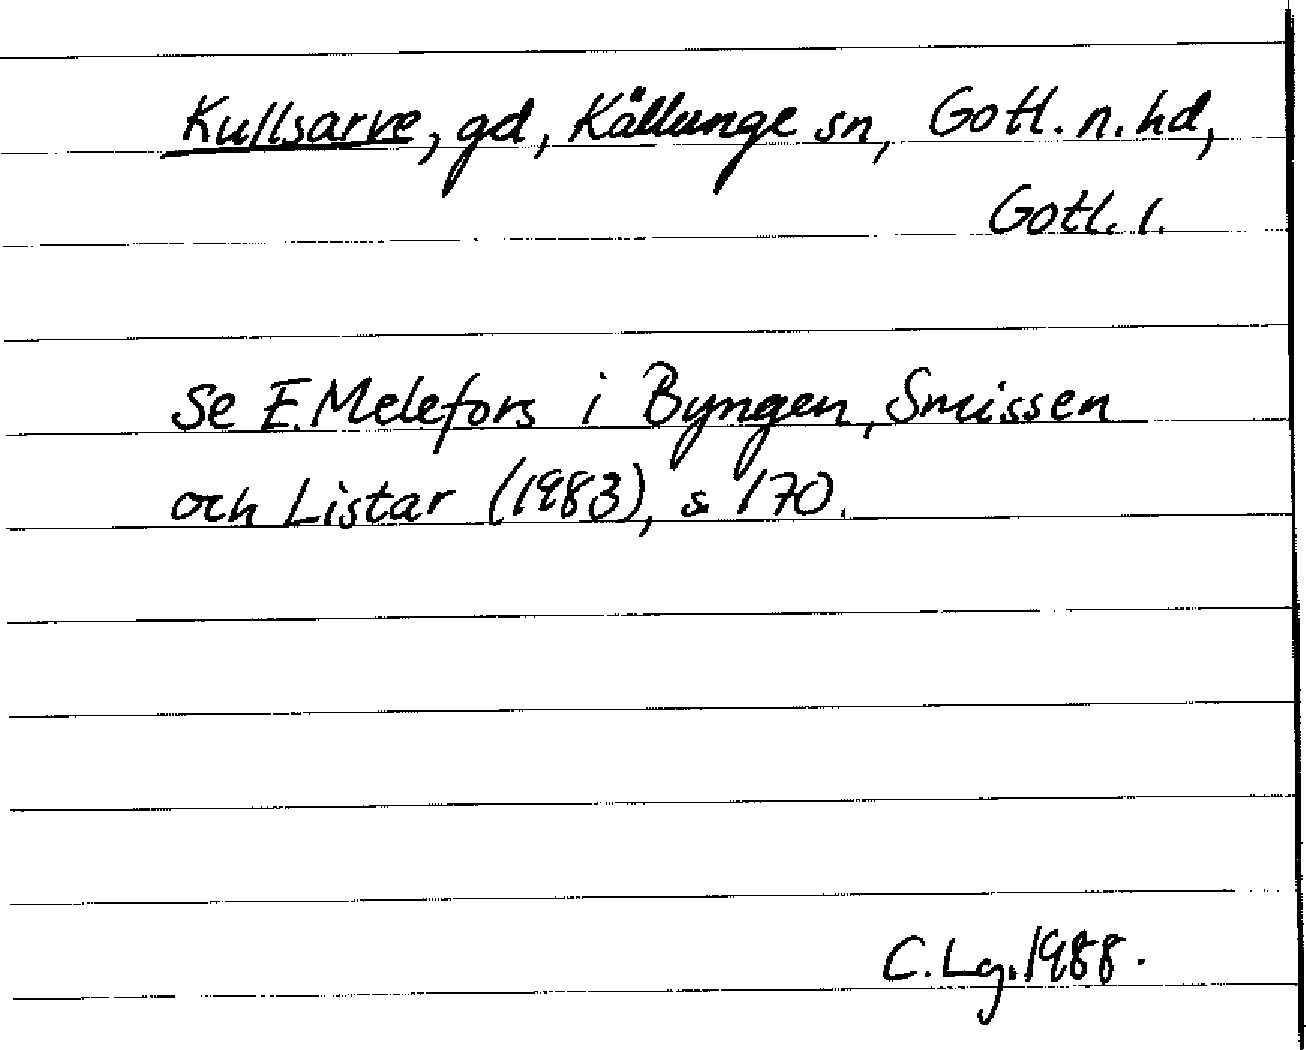 Kullsarve, gd, Källunge sn, Gotl. n. hd,
Gotl. l.
Se E. Melefors i Byngen, Smissen
och Listar (1983), s. 170.
C. Lg. 1988.